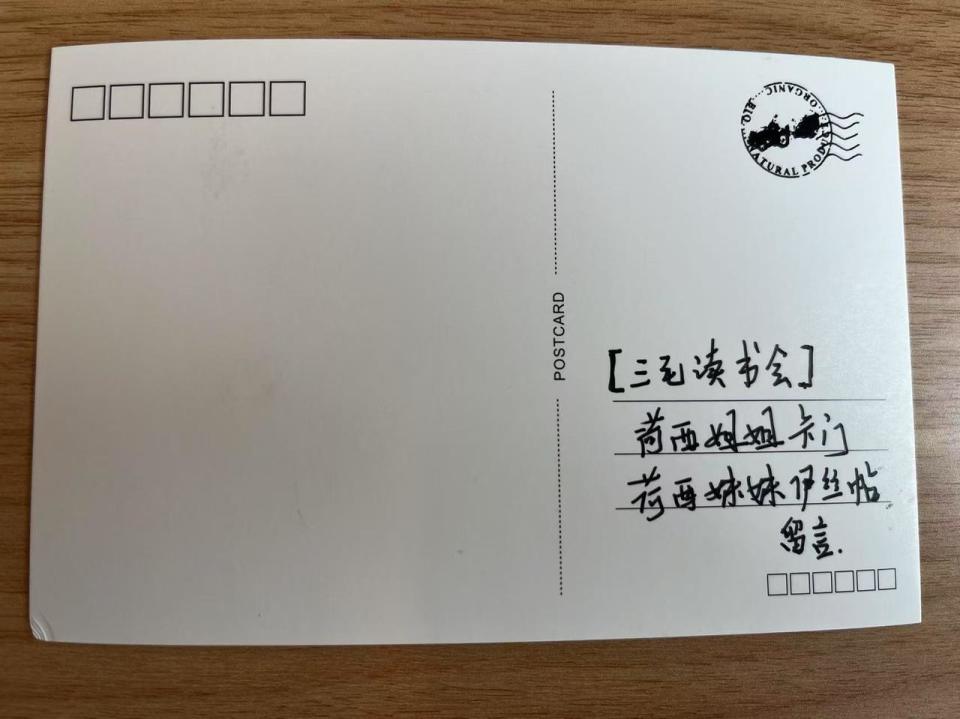 BIO....ORGANIC....NATURAL PRODUCT
POSTCARD
[三毛读书会]
荷西姐姐卡门
荷西妹妹伊丝帖
留言.